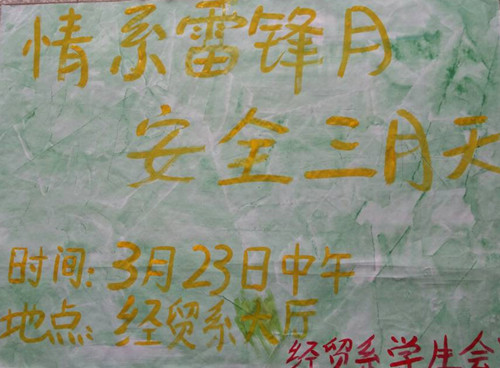 情系雷锋月
安全三月天
时间：3月23日中午
地点：经贸系大厅
经贸系学生会